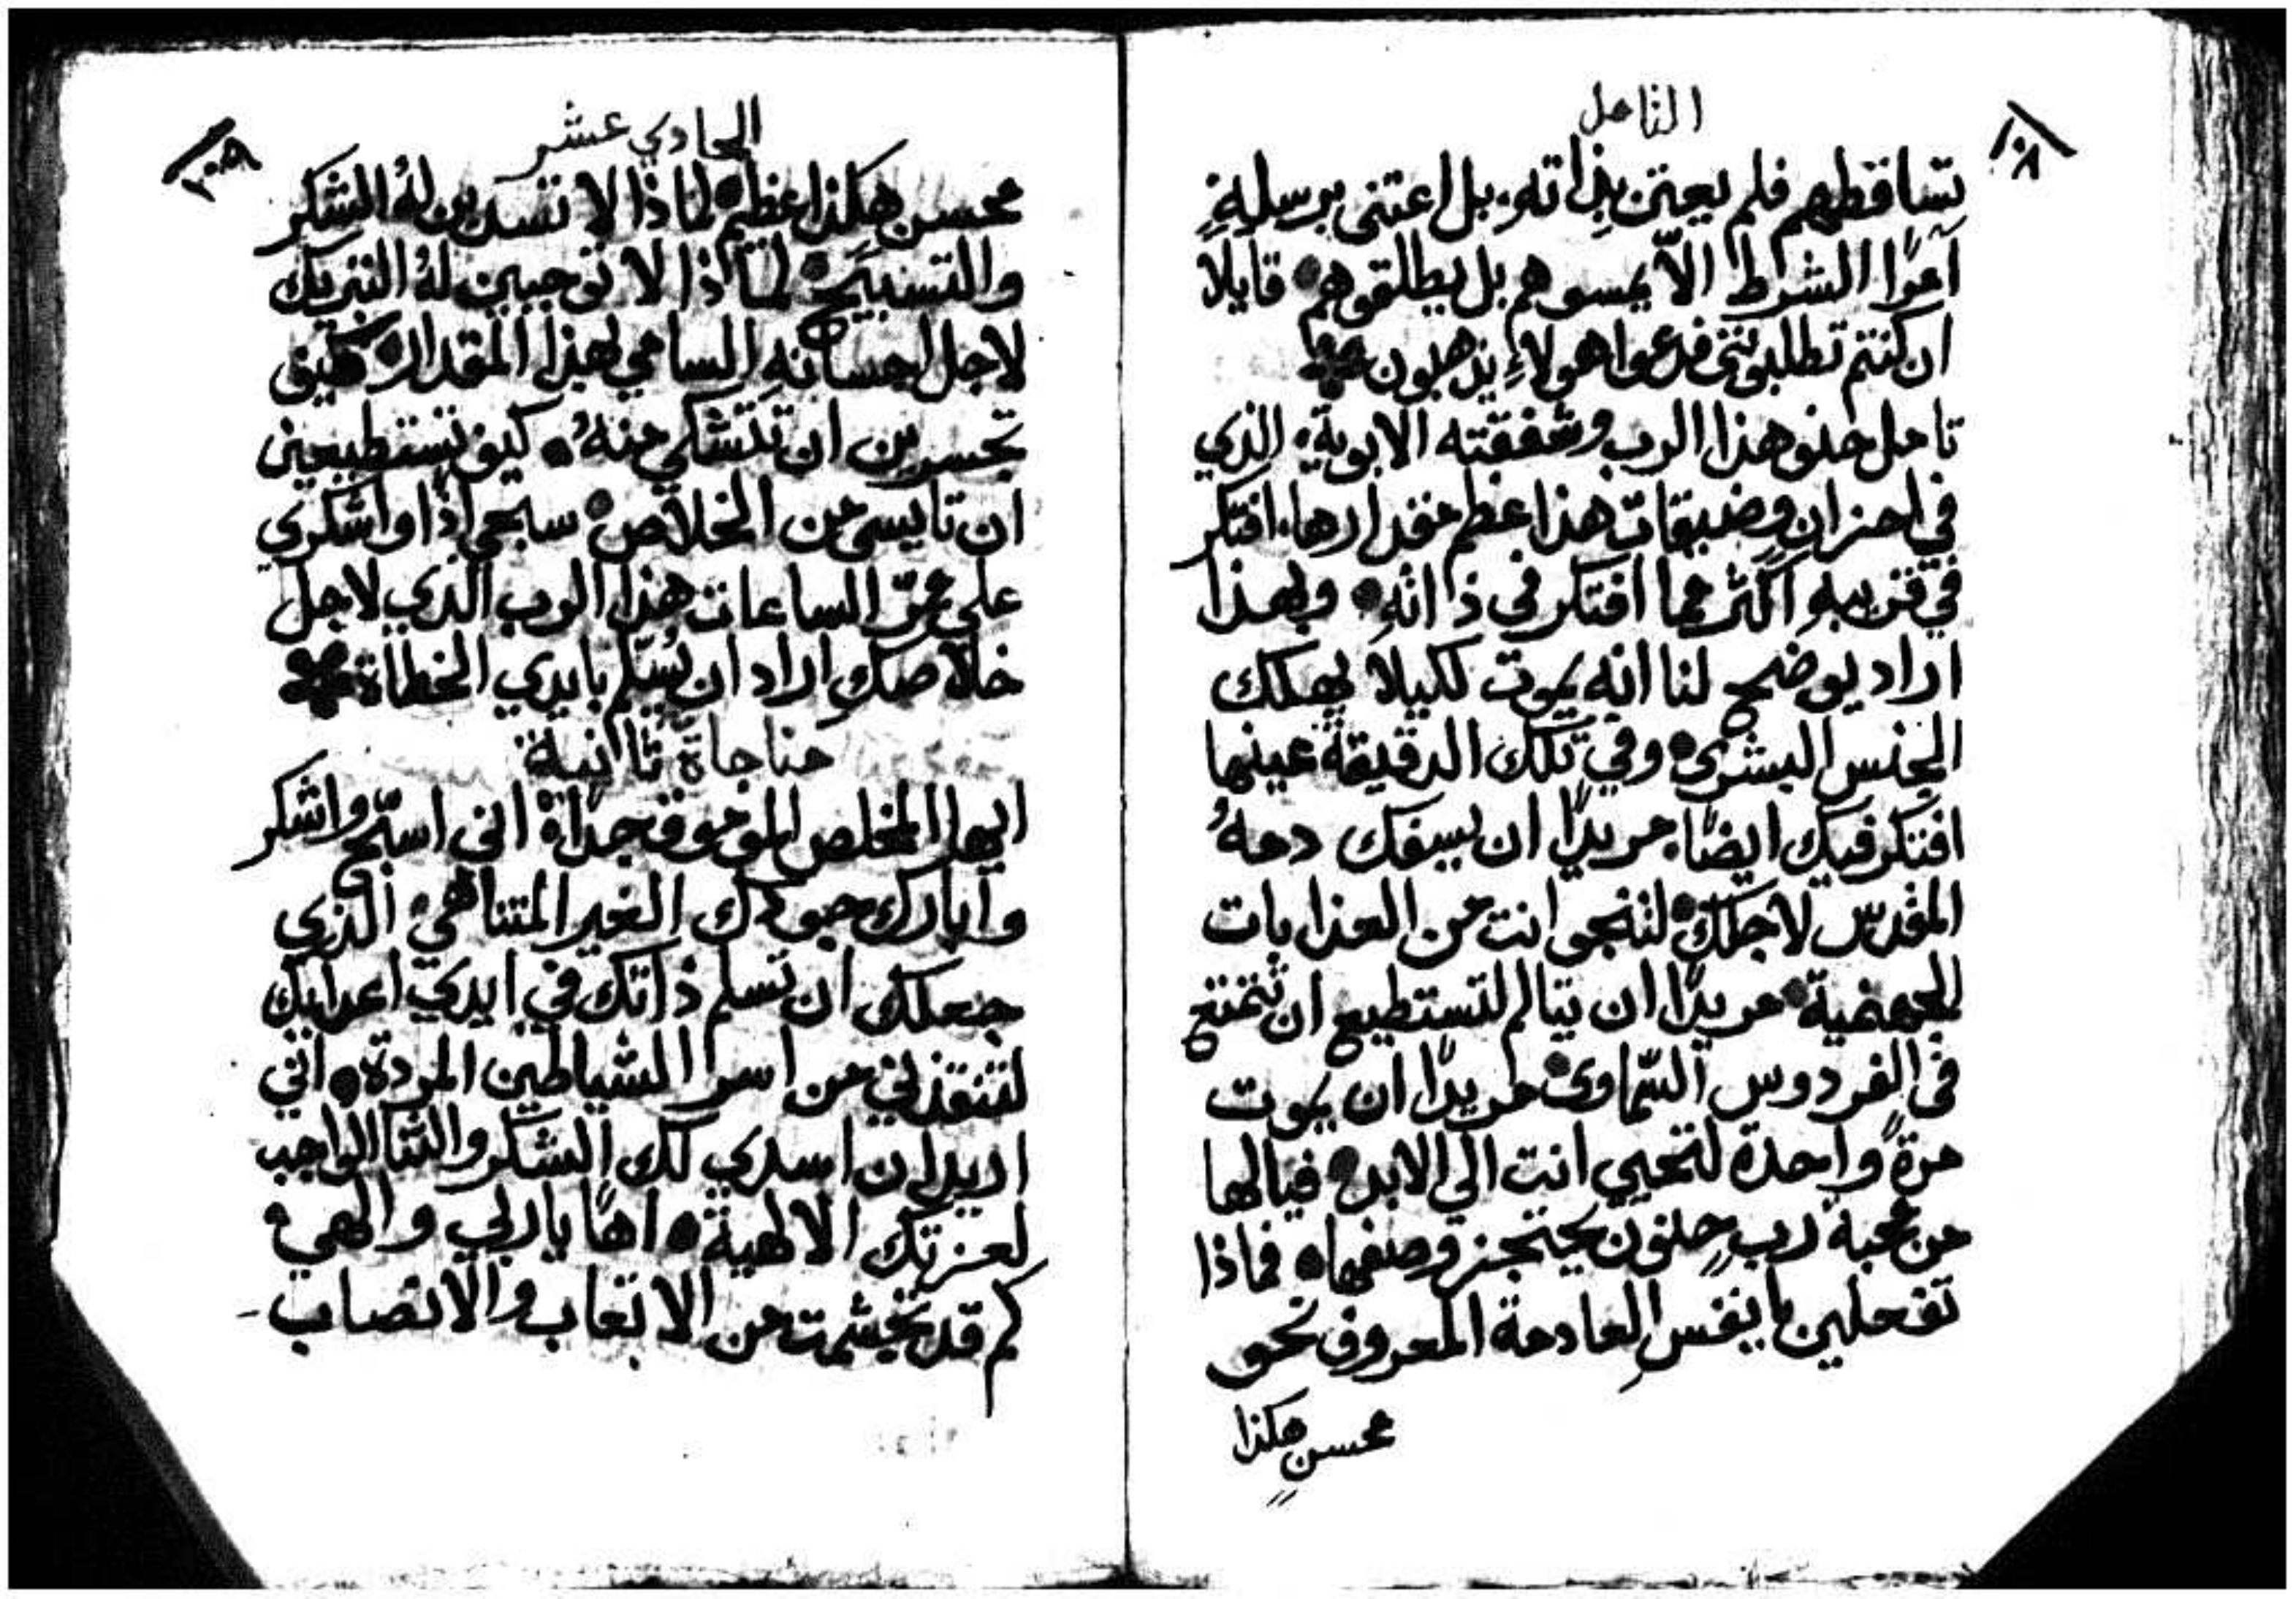 التامل
١٠٨
تساقطهم فلم يعتن بذاته، بل اعتنى برسله
آمرًا الشرط الّا يمسوهم بل يطلقوهم • قايلًا
ان كنتم تطلبونني فدعوا هولاءِ يذهبون
تامل حنو هذا الرب وشفقته الابوية، الذي
في احزان وضيقات هذا عظم مقدارها، افتكر
في قريبهِ اكثر مما افتكر في ذاتهِ • وبهذا
اراد يوضح لنا انه يموت لكيلا يهلك
الجنس البشرى • وفي تلك الدقيقة عينها
افتكر فيك ايضًا، مريدًا ان يسفك دمهُ
المقدس لاجلك • لتنجو انت من العذابات
الجهنمية • مريدًا ان يتالم لتستطيع ان تتمتع
في الفردوس السّماوى • مريدًا ان يموت
مرةً واحدة لتحيي انت الي الابد • فيا لها
من محبة ربٍ حنون يحتجز وصفها • فماذا
تفعلين يا نفس العادمة المعروف نحو
محسنٍ هكذا
الحادي عشر
١٠٩
محسن هكذا عظيم • لماذا لا تسدين لهُ الشكر
والتسبيح • لماذا لا توجبين لهُ التبريك
لاجل احسانهِ السامي لهذا المقدار • كيف
تجسرين ان تتشكي منهُ • كيف تستطيعين
ان تايسي من الخلاص • سبحي اذًا واشكري
علي ممرّ الساعات هذا الرب الذي لاجل
خلاصك اراد ان يُسلّم بايدي الخطاة
مناجاة ثانية
ايها المخلص الموموق جدًا • انني اسبّح واشكر
وابارك جودك الغير المتناهي • الذي
جعلك ان تسلم ذاتك في ايدي اعدايك
لتنقذني من اسر الشياطين المردة • انني
اريد ان اسدي لك الشكر والثنا الواجب
لعزتك الالهية • اهًا يا ربي والهي •
كم قد تجشمت من الاتعاب والانصاب